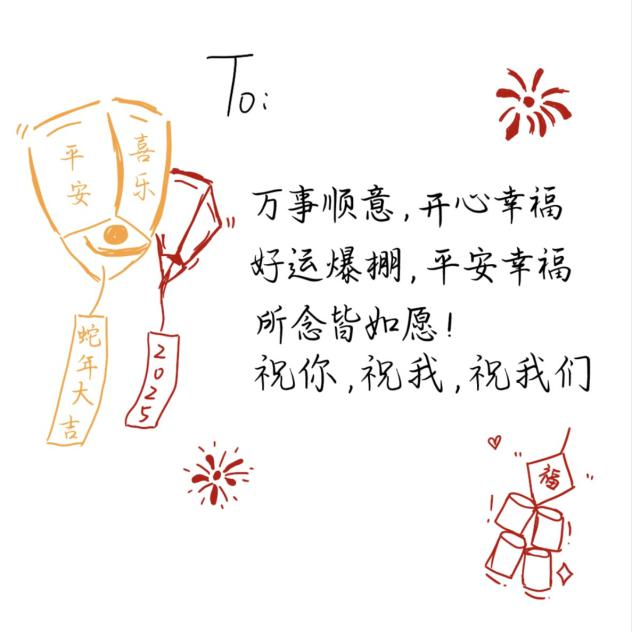 To:
平安
喜乐
万事顺意,开心幸福
好运爆棚,平安幸福
所念皆如愿!
祝你,祝我,祝我们
蛇年大吉
2025
福